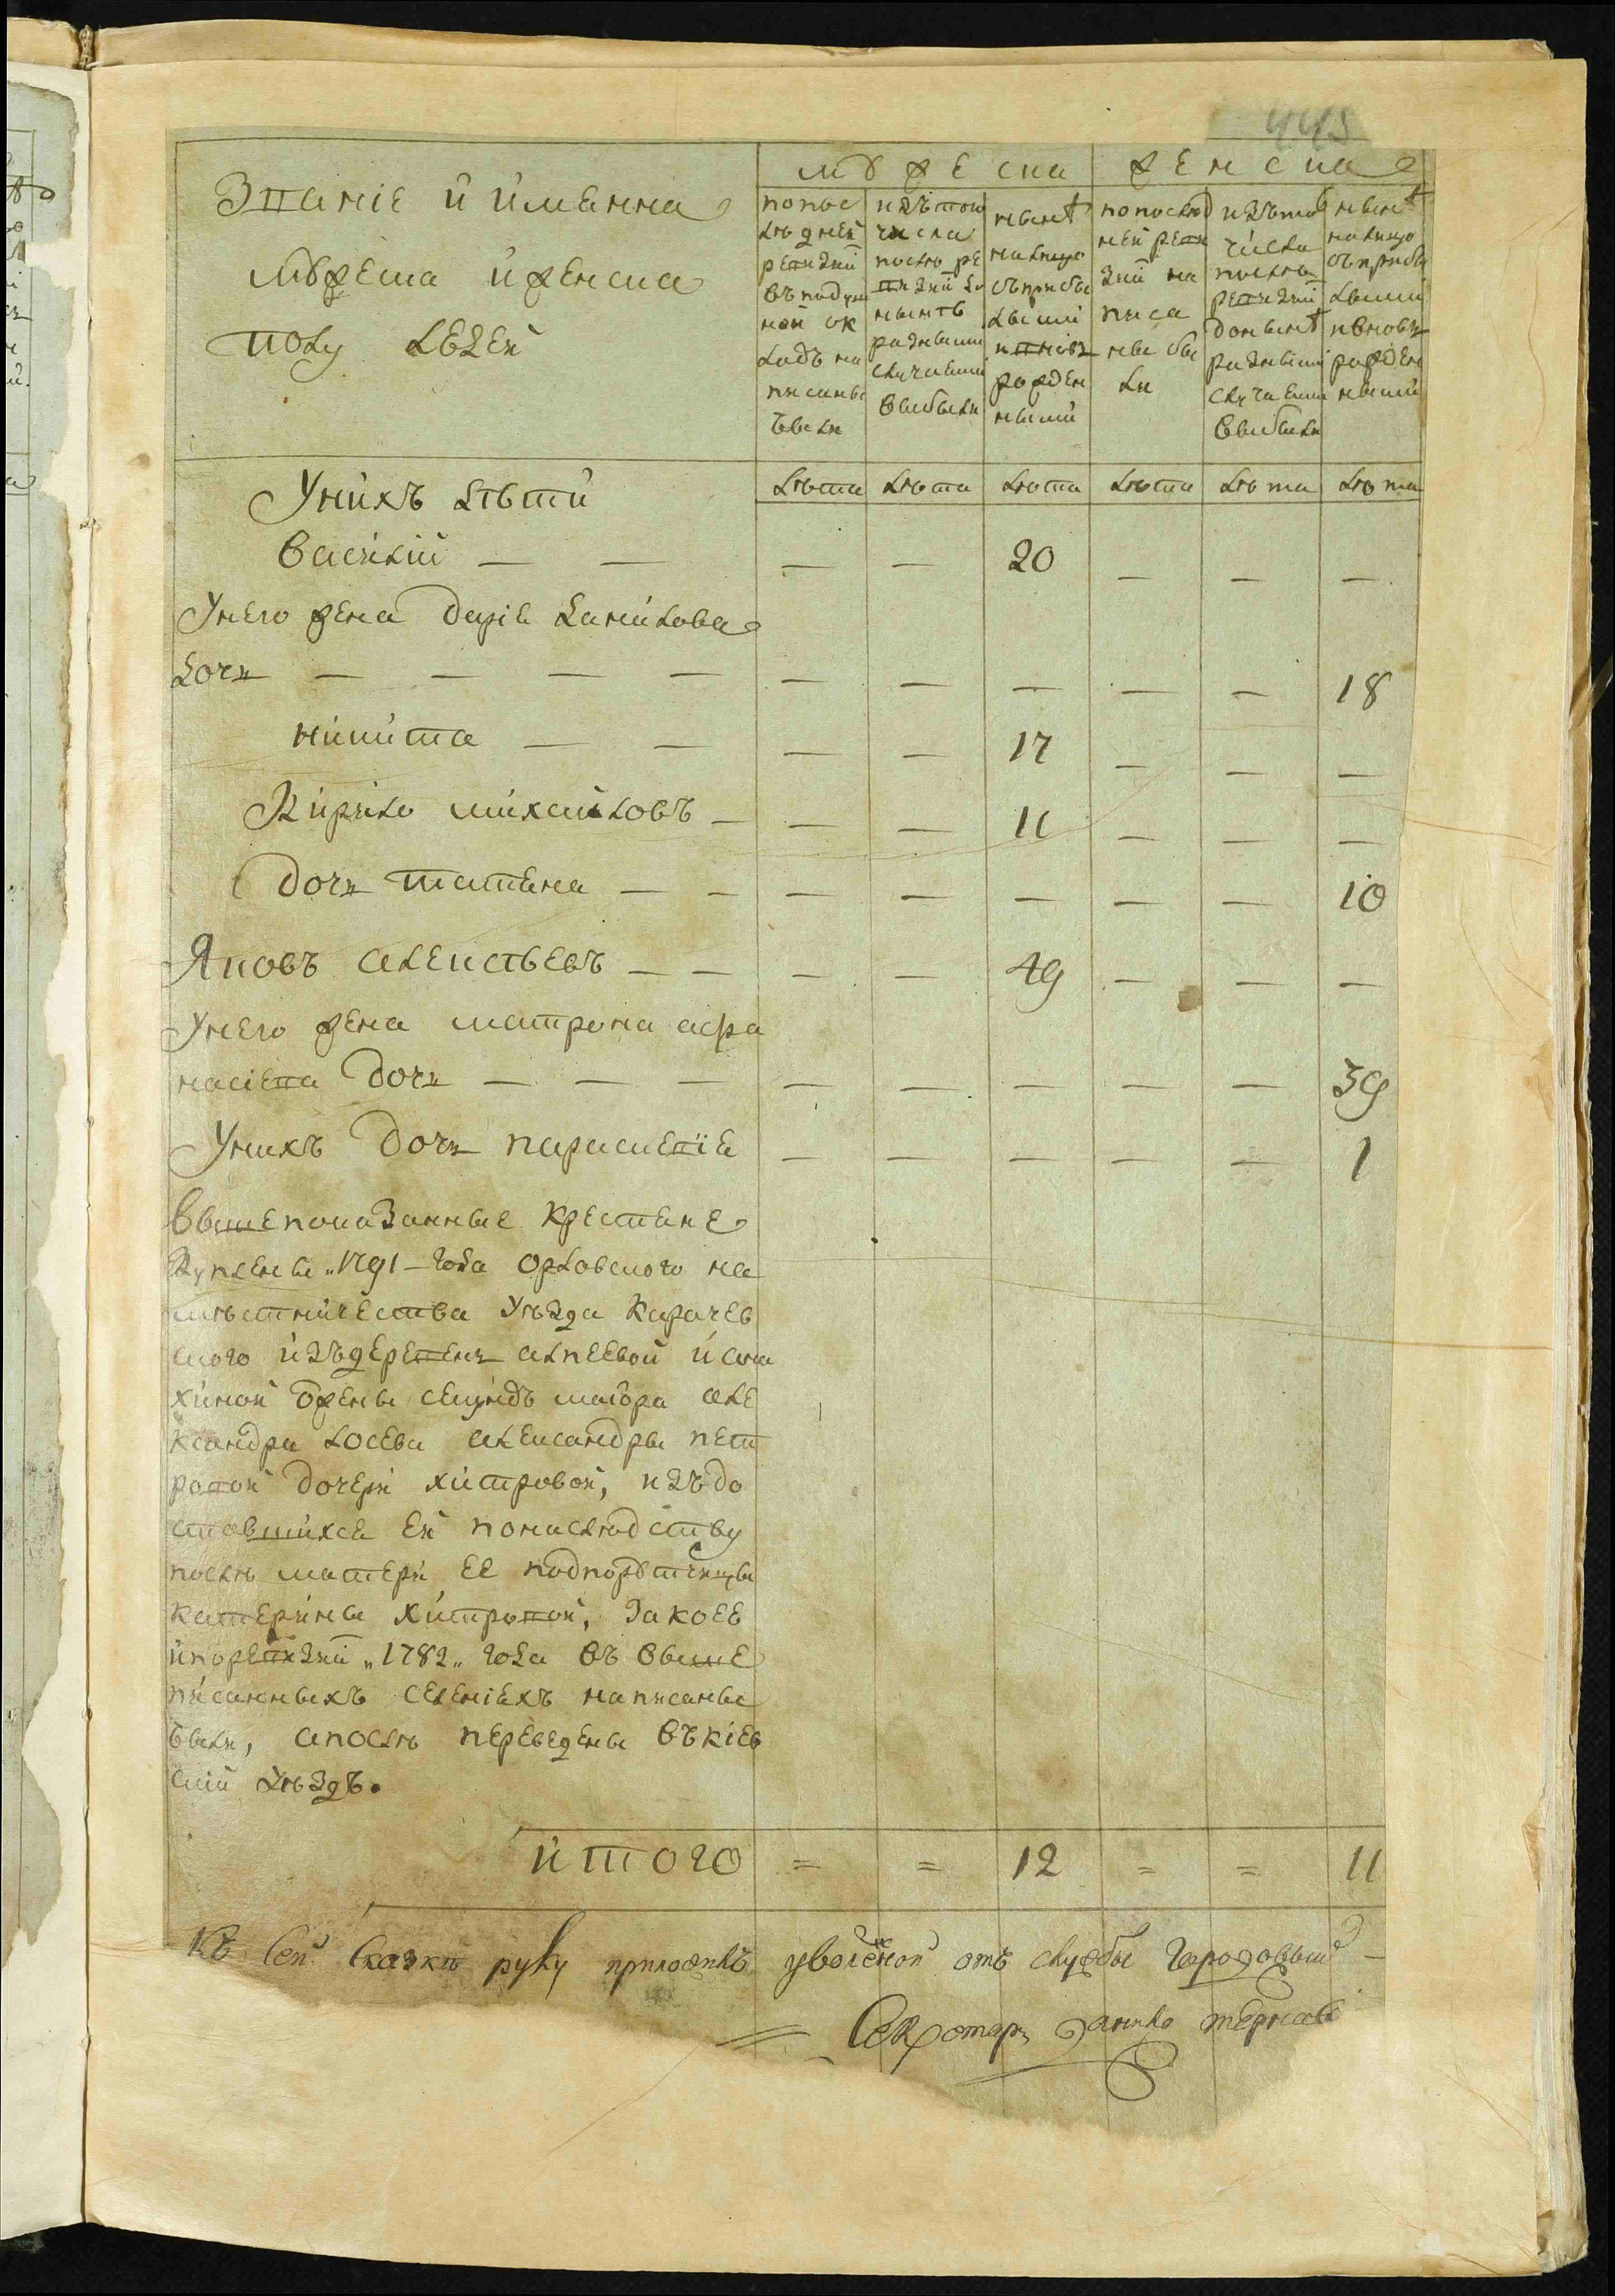 445
Званіе и имянна
мужеска и женска
полу людей
мужеска
женска
попос
лѣдней
ревизіи
въ подуш
ной ок
ладъ на
писаны
были
изъ того
числа
послѣ ре
визіи до
нынѣ
разными
случаеми
выбыли
нынѣ
налицо
съ прибы
лыми
и вновь
рожден
ными
попослѣд
ней реви
зіи на
писа
ны бы
ли
изъ того
числа
послѣ
ревизіи
до нынѣ
разными
случаеми
выбыли
нынѣ
налицо
съ прибы
лыми
и вновь
рожден
ными
лѣта лѣта лѣта лѣта лѣта лѣта
У нихъ дѣти
Василій — — — — 20 — — —
У него жена Дарія Данилова
дочь — — — — — — — — — 18
Никита — — — — 17 — — —
Кирило Михайловъ — — — 11 — — —
дочь Татіана — — — — — — — 10
Яковъ Алексѣевъ — — — — 49 — — —
У него жена Матрона Афа
насіева дочь — — — — — — — — 39
У нихъ дочь Параскевія — — — — — 1
Вышепоказанные крестяне
куплены „1791 — года Орловского на
мѣстничества уѣзда Карачев
ского изъ деревень Алпеевой и
хиной у жены секундъ маіора але
ксандра Лосева Александры пет
ровой дочери Хитровой, изъ до
ставшихся ей по наслѣдству
послѣ матери ее подпорутчицы
Катерины Хитровой, за коее
и по ревизіи „1782„ года въ выше
писанныхъ селеніяхъ написаны
были, а послѣ переведены въ кіев
скій уѣздъ.
итого = = 12 = = 11
Къ сей сказкѣ руку приложилъ уволеной отъ службы городовый —
= Секретарь Данило